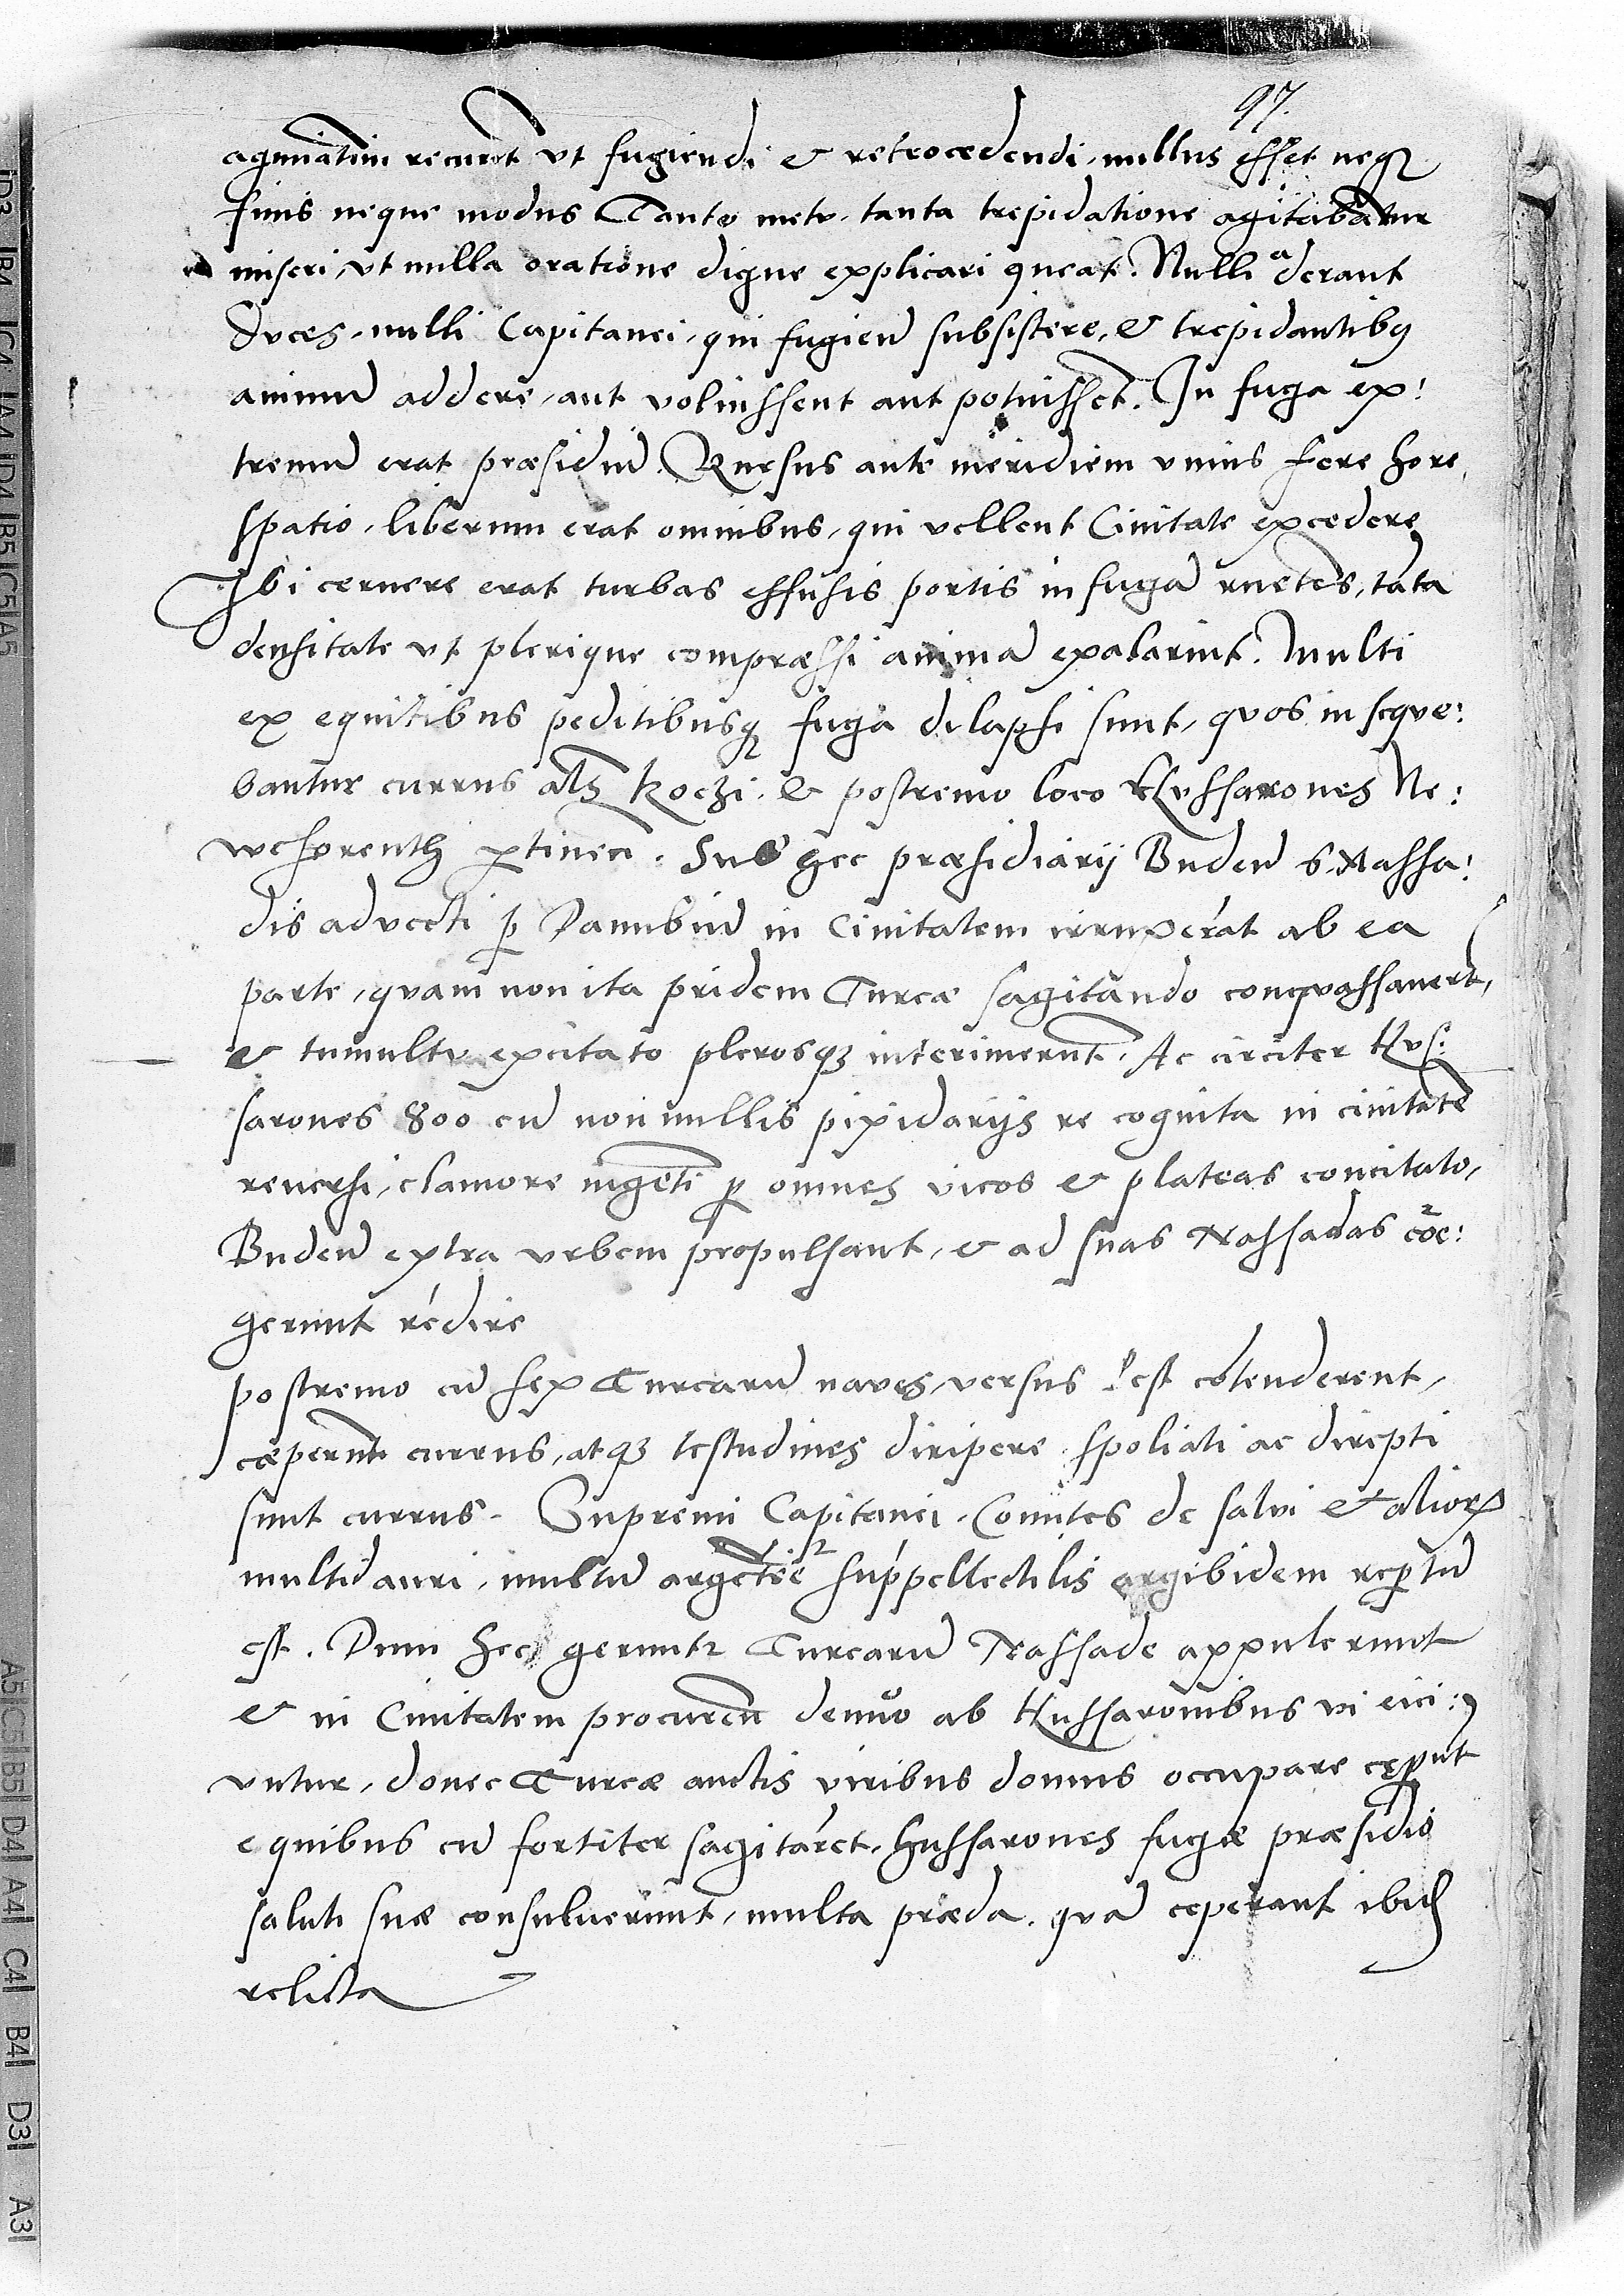 97.
agmīatim recurrūt vt fugiendi & retrocedendi, nullus esset neq₃
finis neque modus Tanto metu, tanta trepidatione agitabātur
miseri, vt nulla oratione digne explicari queat. Nulli aderant
Duces, nulli Capitanei, qui fugien̄ subsistere, & trepidantib₉
animū addere, aut voluissent aut potuissēt. In fuga ex:
tremū erat præsidiū. Rursus ante meridiem vnius fere hore,
spatio, liberum erat omnibus, qui vellent Ciuitate excedere
Ibi cernere erat turbas effusis portis in fugā ruētes, tāta
densitate vt plerique compræssi animā exalarint. Multi
ex equitibus peditibusq₃ fuga dilapsi sunt, quos in seque:
bantur currus al̄s Koczi. & postremo loco Hussarones Ne:
wehorenth ꝑtinen̄. Sub hec præsidiarij Buden̄ 6 Nassa:
dis aduecti ꝑ Danubiū in Ciuitatem irruperāt ab ea
parte, quam non ita pridem Turcæ sagitando conquassauerūt,
& tumultu excitato plerosq₃ interimerunt. Ac circiter Hus:
sarones 800 cū non nullis pixidarijs re cognita in ciuitatē
reuersi, clamore ingēti ꝑ omnes vicos & plateas concitato,
Buden̄ extra vrbem propulsant, & ad suas Nassadas cōe:
gerunt redire
postremo cū sex Turcarū naues, versus Pest cōtenderent,
cæperūt currus, atq₃ testudines diripere spoliati ac direpti
sunt currus. Supremi Capitanei, Comites de Salm & alioꝝ
multū auri, multū argētee suppellectilis ibidem reꝑtū
est. Dum hec geruntr Turcarū Nassade appulerunt
& in Ciuitatem procuren̄ denuo ab Hussaronibus vi eici:
untur, donec Turcæ auctis viribus domus occupare cęꝑūt
e quibus cū fortiter sagitarēt, Hussarones fugæ præsidio
saluti suæ consuluerunt, multa præda, quā ceperant ibid̄
relicta